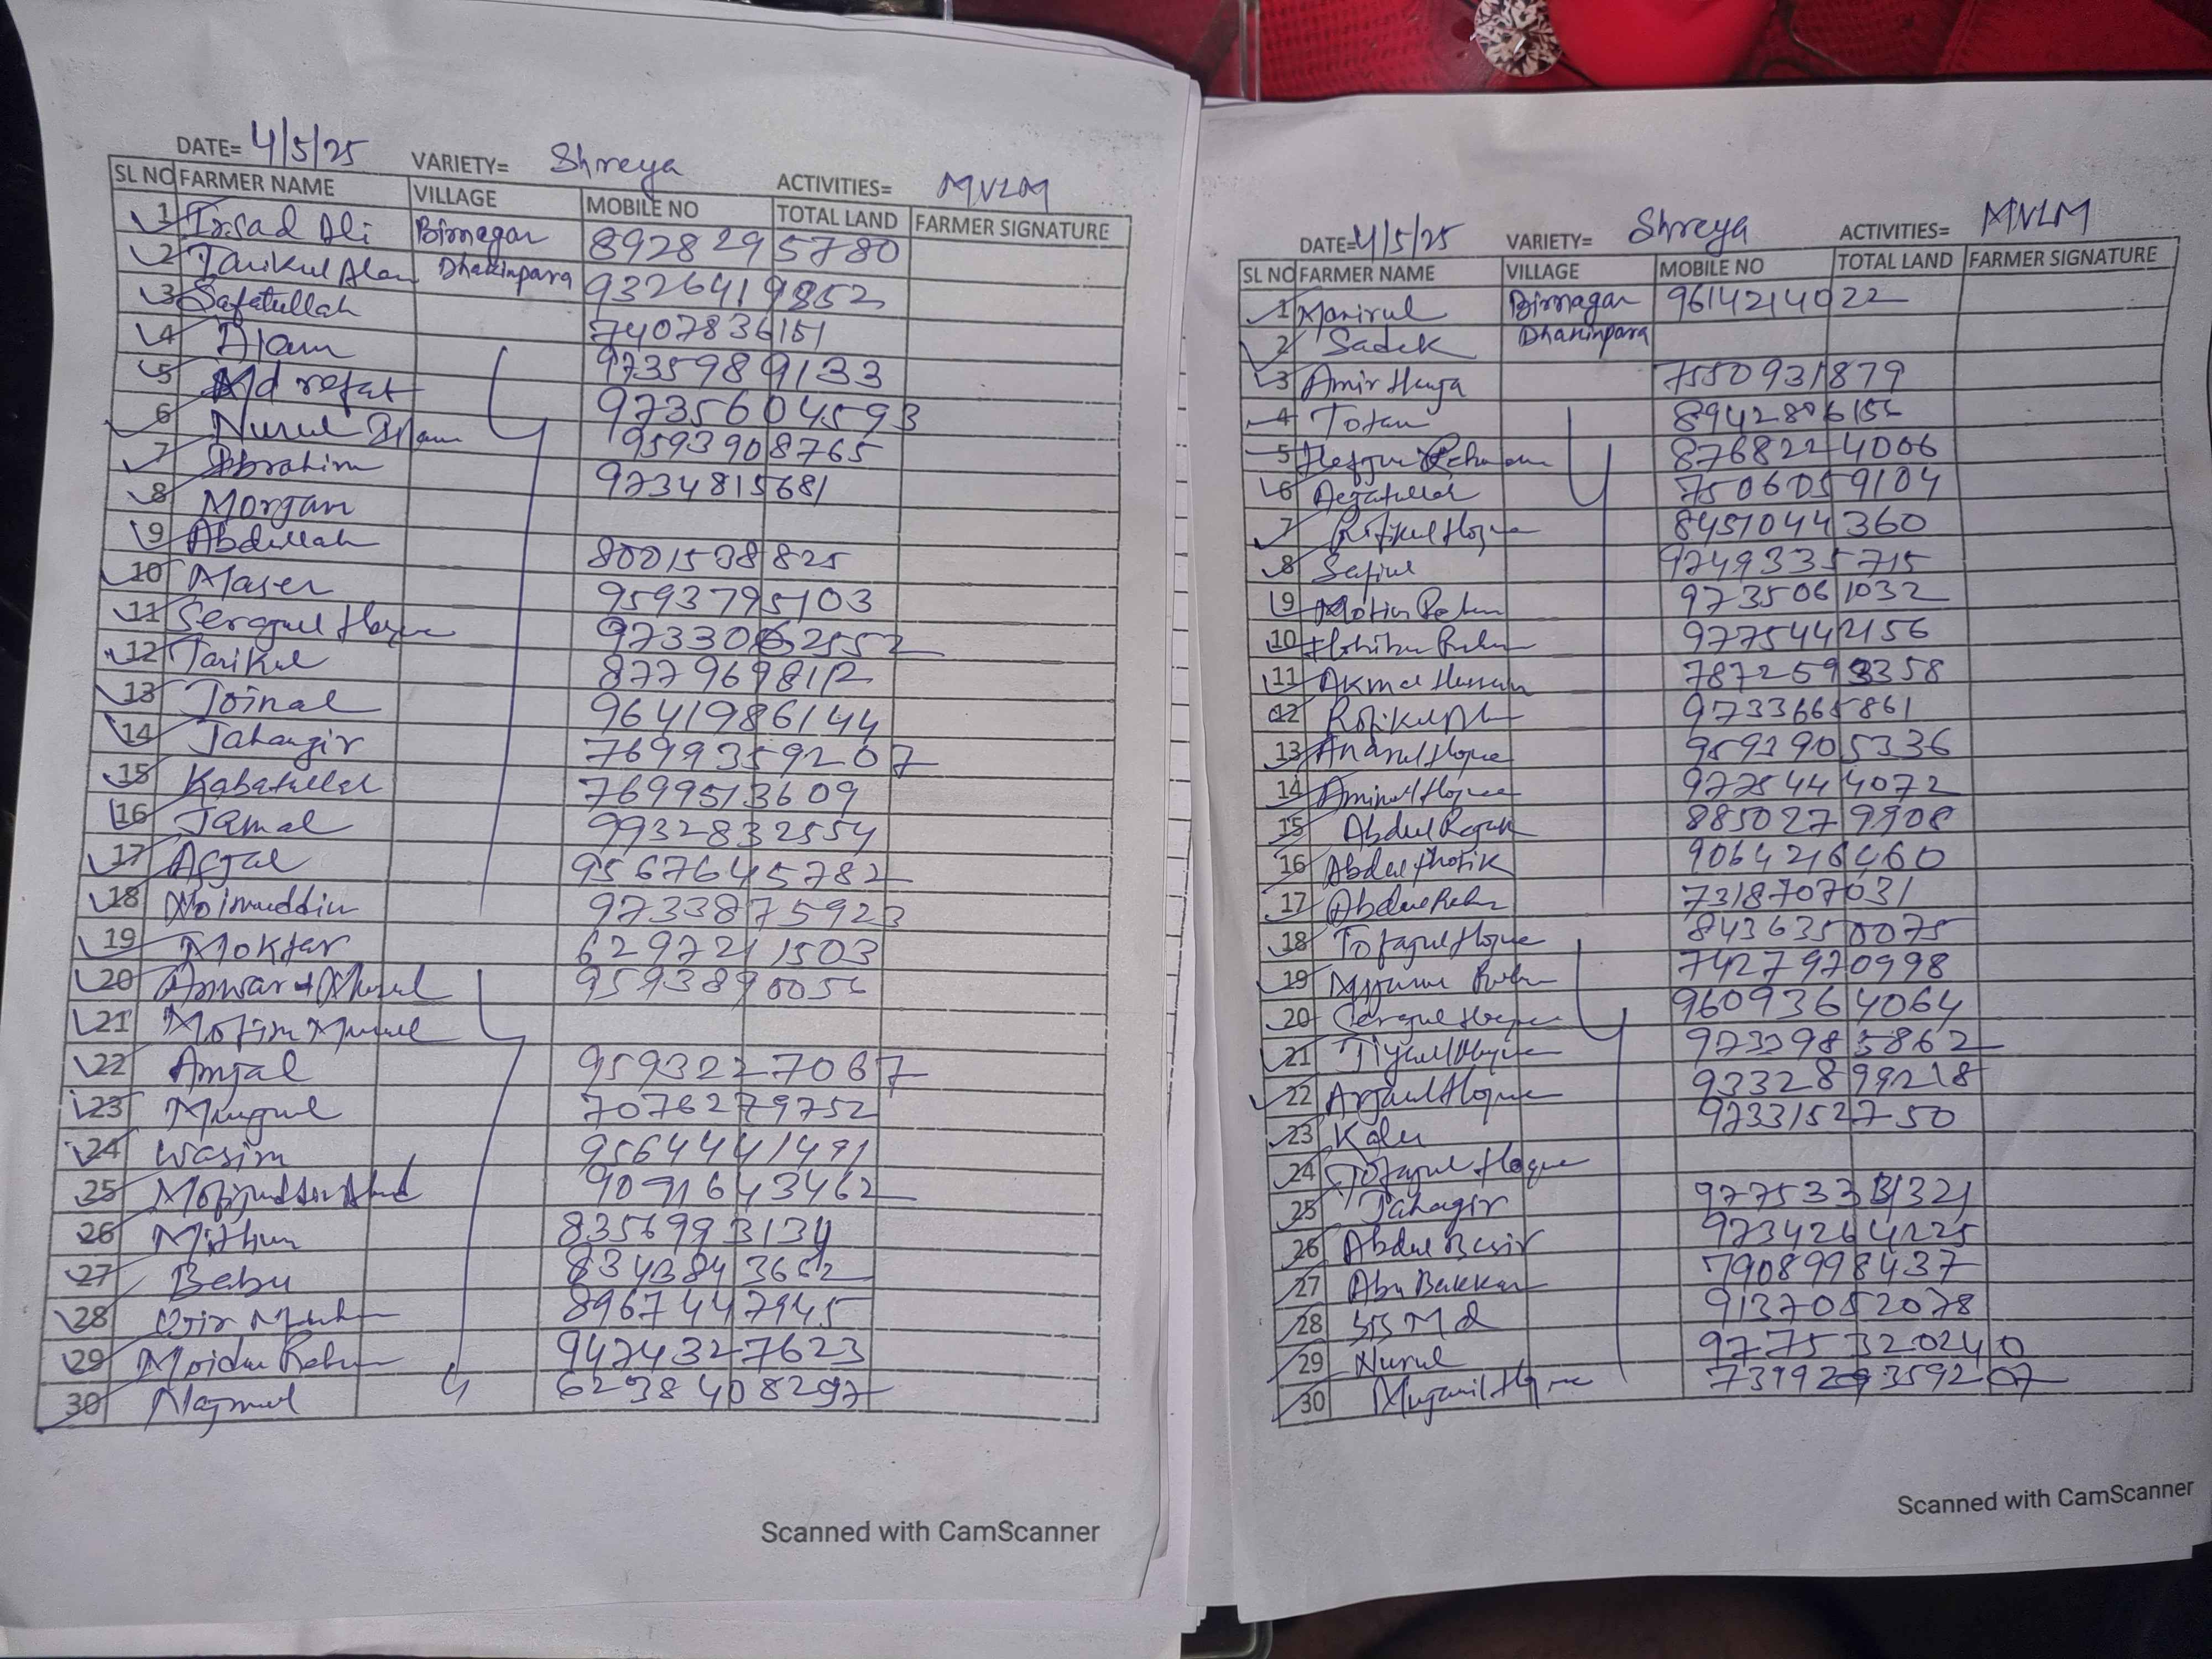 DATE= 4/5/25 VARIETY= Shreya ACTIVITIES= MVLM
SL NO FARMER NAME VILLAGE MOBILE NO TOTAL LAND FARMER SIGNATURE
1 Irsad Ali Birnagar 8928295780
2 Tarikul Alam Dhakinpara 9326419852
3 Safatullah 7407836151
4 Alam 9735989133
5 Md refat 9735604593
6 Nurul Islam 9593908765
7 Ibrahim 9734815681
8 Morgan
9 Abdullah 8001538825
10 Maser 9593795103
11 Serajul Hoque 9733062552
12 Tarikul 8779698112
13 Joinal 9641986144
14 Jahangir 7699359207
15 Kabatullah 7699513609
16 Jamal 9932832554
17 Afjal 9567645782
18 Noimuddin 9733875923
19 Moktar 6297211503
20 Anwar 9593890056
21 Mofim
22 Amjal 9593227067
23 7076279752
24 Wasim 9564441491
25 9091643462
26 Mithun 8356993134
27 Babu
28 8967447945
29 Moidur Rahman 9474327623
30 Najmul 6298408297
Scanned with CamScanner
DATE= 4/5/25 VARIETY= Shreya ACTIVITIES= MVLM
SL NO FARMER NAME VILLAGE MOBILE NO TOTAL LAND FARMER SIGNATURE
1 Manirul Birnagar 9614214022
2 Sadek Dhakinpara
3 Amir 7550931879
4 Totan 8942806156
5 8768224006
6 7506059104
7 Rofikul Hoque 8451044360
8 Safiul 9749335715
9 Motiur Rahman 9735061032
10 Hobibur Rahman 9775442156
11 Akmal Hussain
12 9733665861
13 Anarul Hoque 9591905336
14 Aminul Hoque 9775444072
15 Abdul Rajak 8850279908
16 Abdul 9064216460
17 Abdul 7318707031
18 Tofajul Hoque 8436350075
19 7427970998
20 Serajul Hoque 9609364064
21 9733985862
22 Hoque 9332899218
23 Kalu 9733152750
24 Tofajul Hoque
25 Jahagir
26 Abdul Basir 9734264225
27 Abu Bakkar 7908998437
28 Md 9137052078
29 Nurul 9775320240
30
Scanned with CamScanner